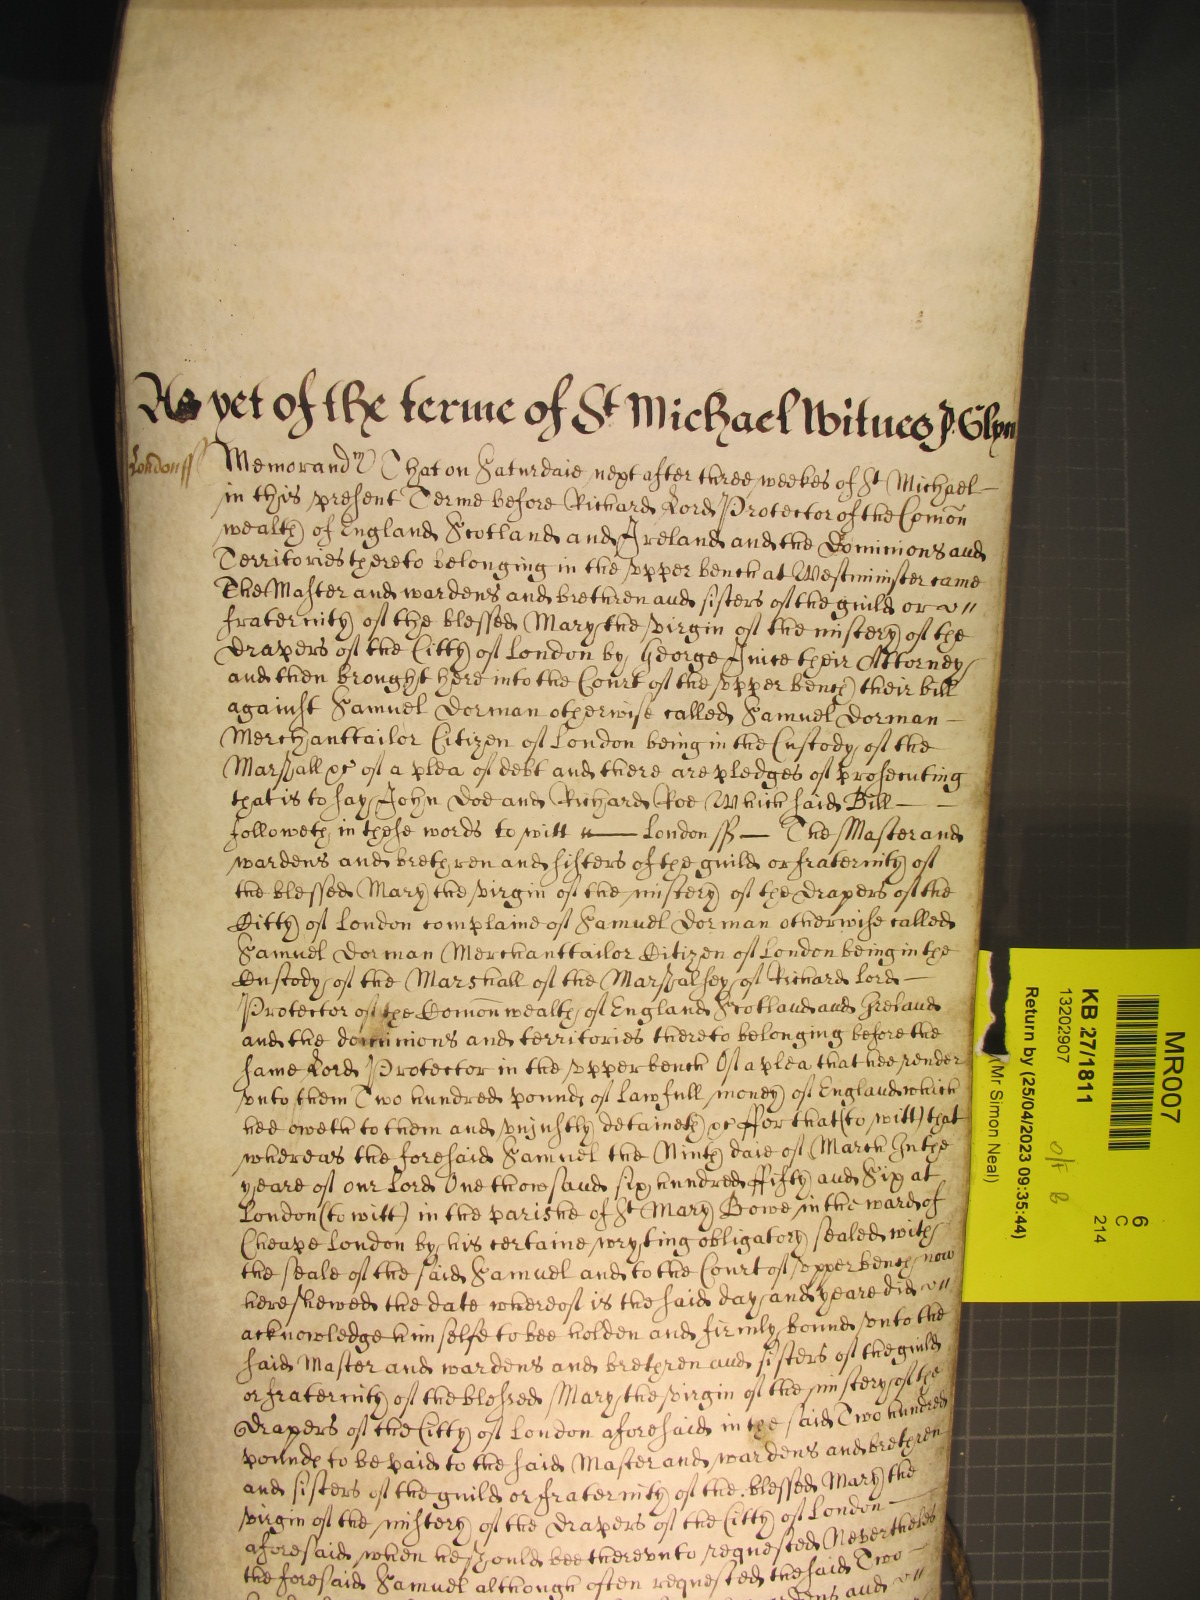 As yet of the terme of St Michael Witnes J. Glyn
London ss
Memorandm That on Saturdaie next after three weekes of St Michael
in this present Terme before Richard Lord Protector of the Comon
wealth of England Scotland and Ireland and the Dominions and
Territories thereto belonging in the vpper bench at Westminister came
The Master and wardens and brethren and sisters of the guild or
fraternity of the blessed Mary the virgin of the mistery of the
Drapers of the Citty of London by George their Attorney
and then brought here into the Court of the vpper bench their bill
against Samuel Dorman otherwise called Samuel Dorman
Merchanttailor Citizen of London being in the Custody of the
Marshall &c of a plea of debt and there are pledges of prosecuting
that is to say John Doe and Richard Roe Which said Bill
followeth in these words to witt London ss The Master and
wardens and brethren and sisters of the guild or fraternity of
the blessed Mary the virgin of the mistery of the Drapers of the
Citty of London complaine of Samuel Dorman otherwise called
Samuel Dorman Merchanttailor Citizen of London being in the
Custody of the Marshall of the Marshalsey of Richard Lord
Protector of the Comonwealth of England Scotland and Ireland
and the dominions and territories thereto belonging before the
same Lord Protector in the vpper bench Of a plea that hee render
vnto them Two hundred pounds of Lawfull money of England which
hee oweth to them and vniustly detaineth &c ffor that (to witt) that
whereas the foresaid Samuel the Ninth daie of March In the
yeare of our Lord One thowsand six hundred ffifty and Six at
London (to witt) in the parishe of St Mary Bowe in the ward of
Cheape London by his certaine wryting obligatory sealed with
the seale of the said Samuel and to the Court of vpper bench now
here shewed the date whereof is the said day and yeare did
acknowledge him selfe to bee holden and firmly bound vnto the
said Master and wardens and brethren and sisters of the guild
or fraternity of the blessed Mary the virgin of the mistery of the
Drapers of the Citty of London aforesaid in the said Two hundred
pounds to be paid to the said Master and wardens and brethren
and sisters of the guild or fraternity of the blessed Mary the
virgin of the mistery of the Drapers of the Citty of London
aforesaid when he should bee therevnto requested Neverthelss
the foresaid Samuel although often requested the said Two
MR007
KB 27/1811
13202907
Return by (25/04/2023 09:35:44)
(Mr Simon Neal)
6
C
214